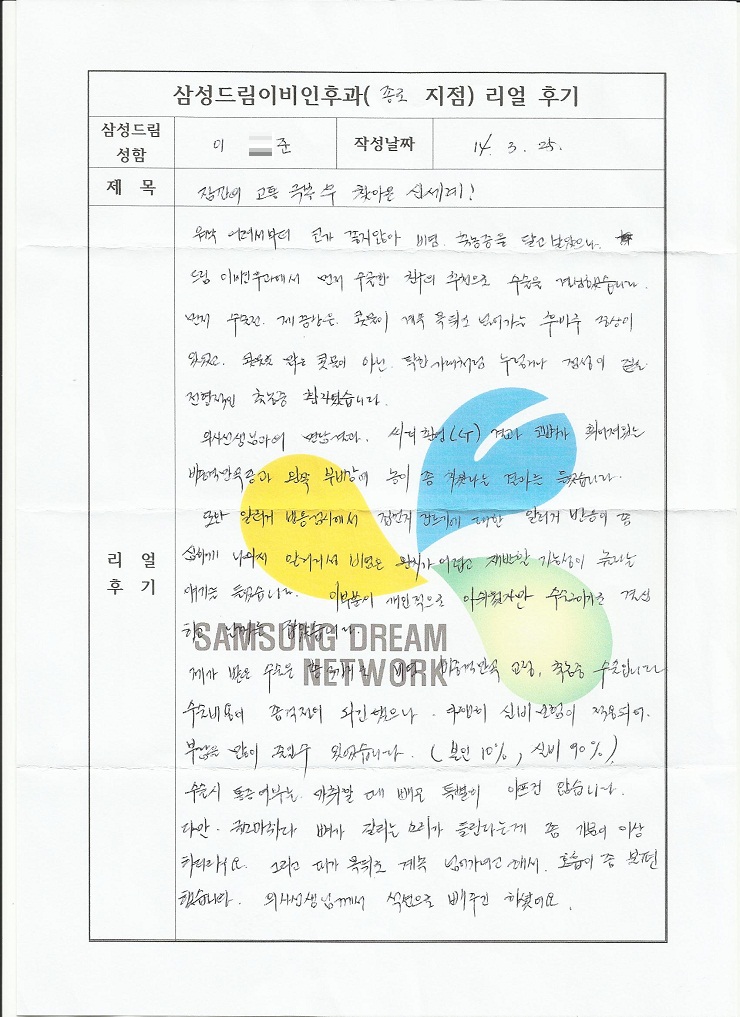 삼성드림이비인후과( 종로 지점) 리얼 후기
삼성드림
성함
이 준
작성날짜
14. 3. 25.
제 목
잠깐의 고통 극복 후 찾아온 신세계!
리 얼
후 기
워낙 어려서부터 코가 좋지않아 비염, 축농증을 달고 살았으나.
드림 이비인후과에서 먼저 수술한 친구의 추천으로 수술을 결정했습니다.
먼저 수술전. 제 증상은. 콧물이 계속 목뒤로 넘어가는 후비루 증상이
있었고. 콧물도 맑은 콧물이 아닌. 탁한 가래처럼 누렇거나 점성이 짙은
전형적인 축농증 환자였습니다.
의사선생님과의 면담결과. 씨티촬영(CT) 결과 코뼈가 휘어져있는
비중격만곡증과 왼쪽 부비강에 농이 좀 차있다는 결과를 들었습니다.
또한 알러지 반응검사에서 집먼지 진드기에 대한 알러지 반응이 좀
심하게 나와서 알러지성 비염은 완치가 어렵고 재발할 가능성이 크다는
얘기를 들었습니다. 이부분이 개인적으로 아쉬웠지만 수술하기로 결심
하고 날짜를 잡았습니다.
SAMSUNG DREAM
NETWORK
제가 받은 수술은 비염 비중격만곡 교정, 축농증 수술입니다
수술비용이 좀 걱정이 되긴했으나. 다행히 실비보험이 적용되어.
부담을 많이 줄일수 있었습니다. (본인 10%, 실비 90%)
수술시 통증여부는. 마취할 때 빼고 특별히 아프진 않습니다.
다만. 뼈가 갈리는 소리가 들린다는게 좀 기분이 이상
하더라구요. 그리고 피가 목뒤로 계속 넘어가려고 해서. 호흡이 좀 불편
했습니다. 의사선생님께서 석션으로 빼주긴 하셨어요.